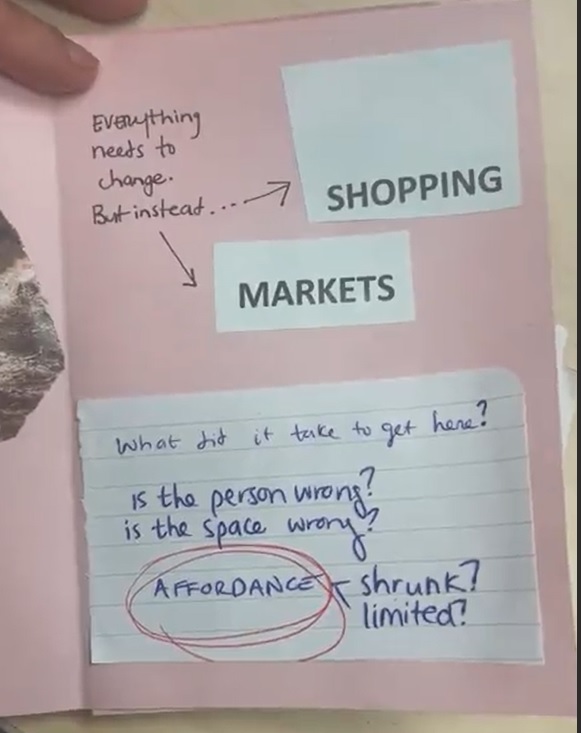 Everything
needs to
change.
But instead....
SHOPPING
MARKETS
What did it take to get here?
is the person wrong?
is the space wrong?
AFFORDANCE shrunk?
limited?